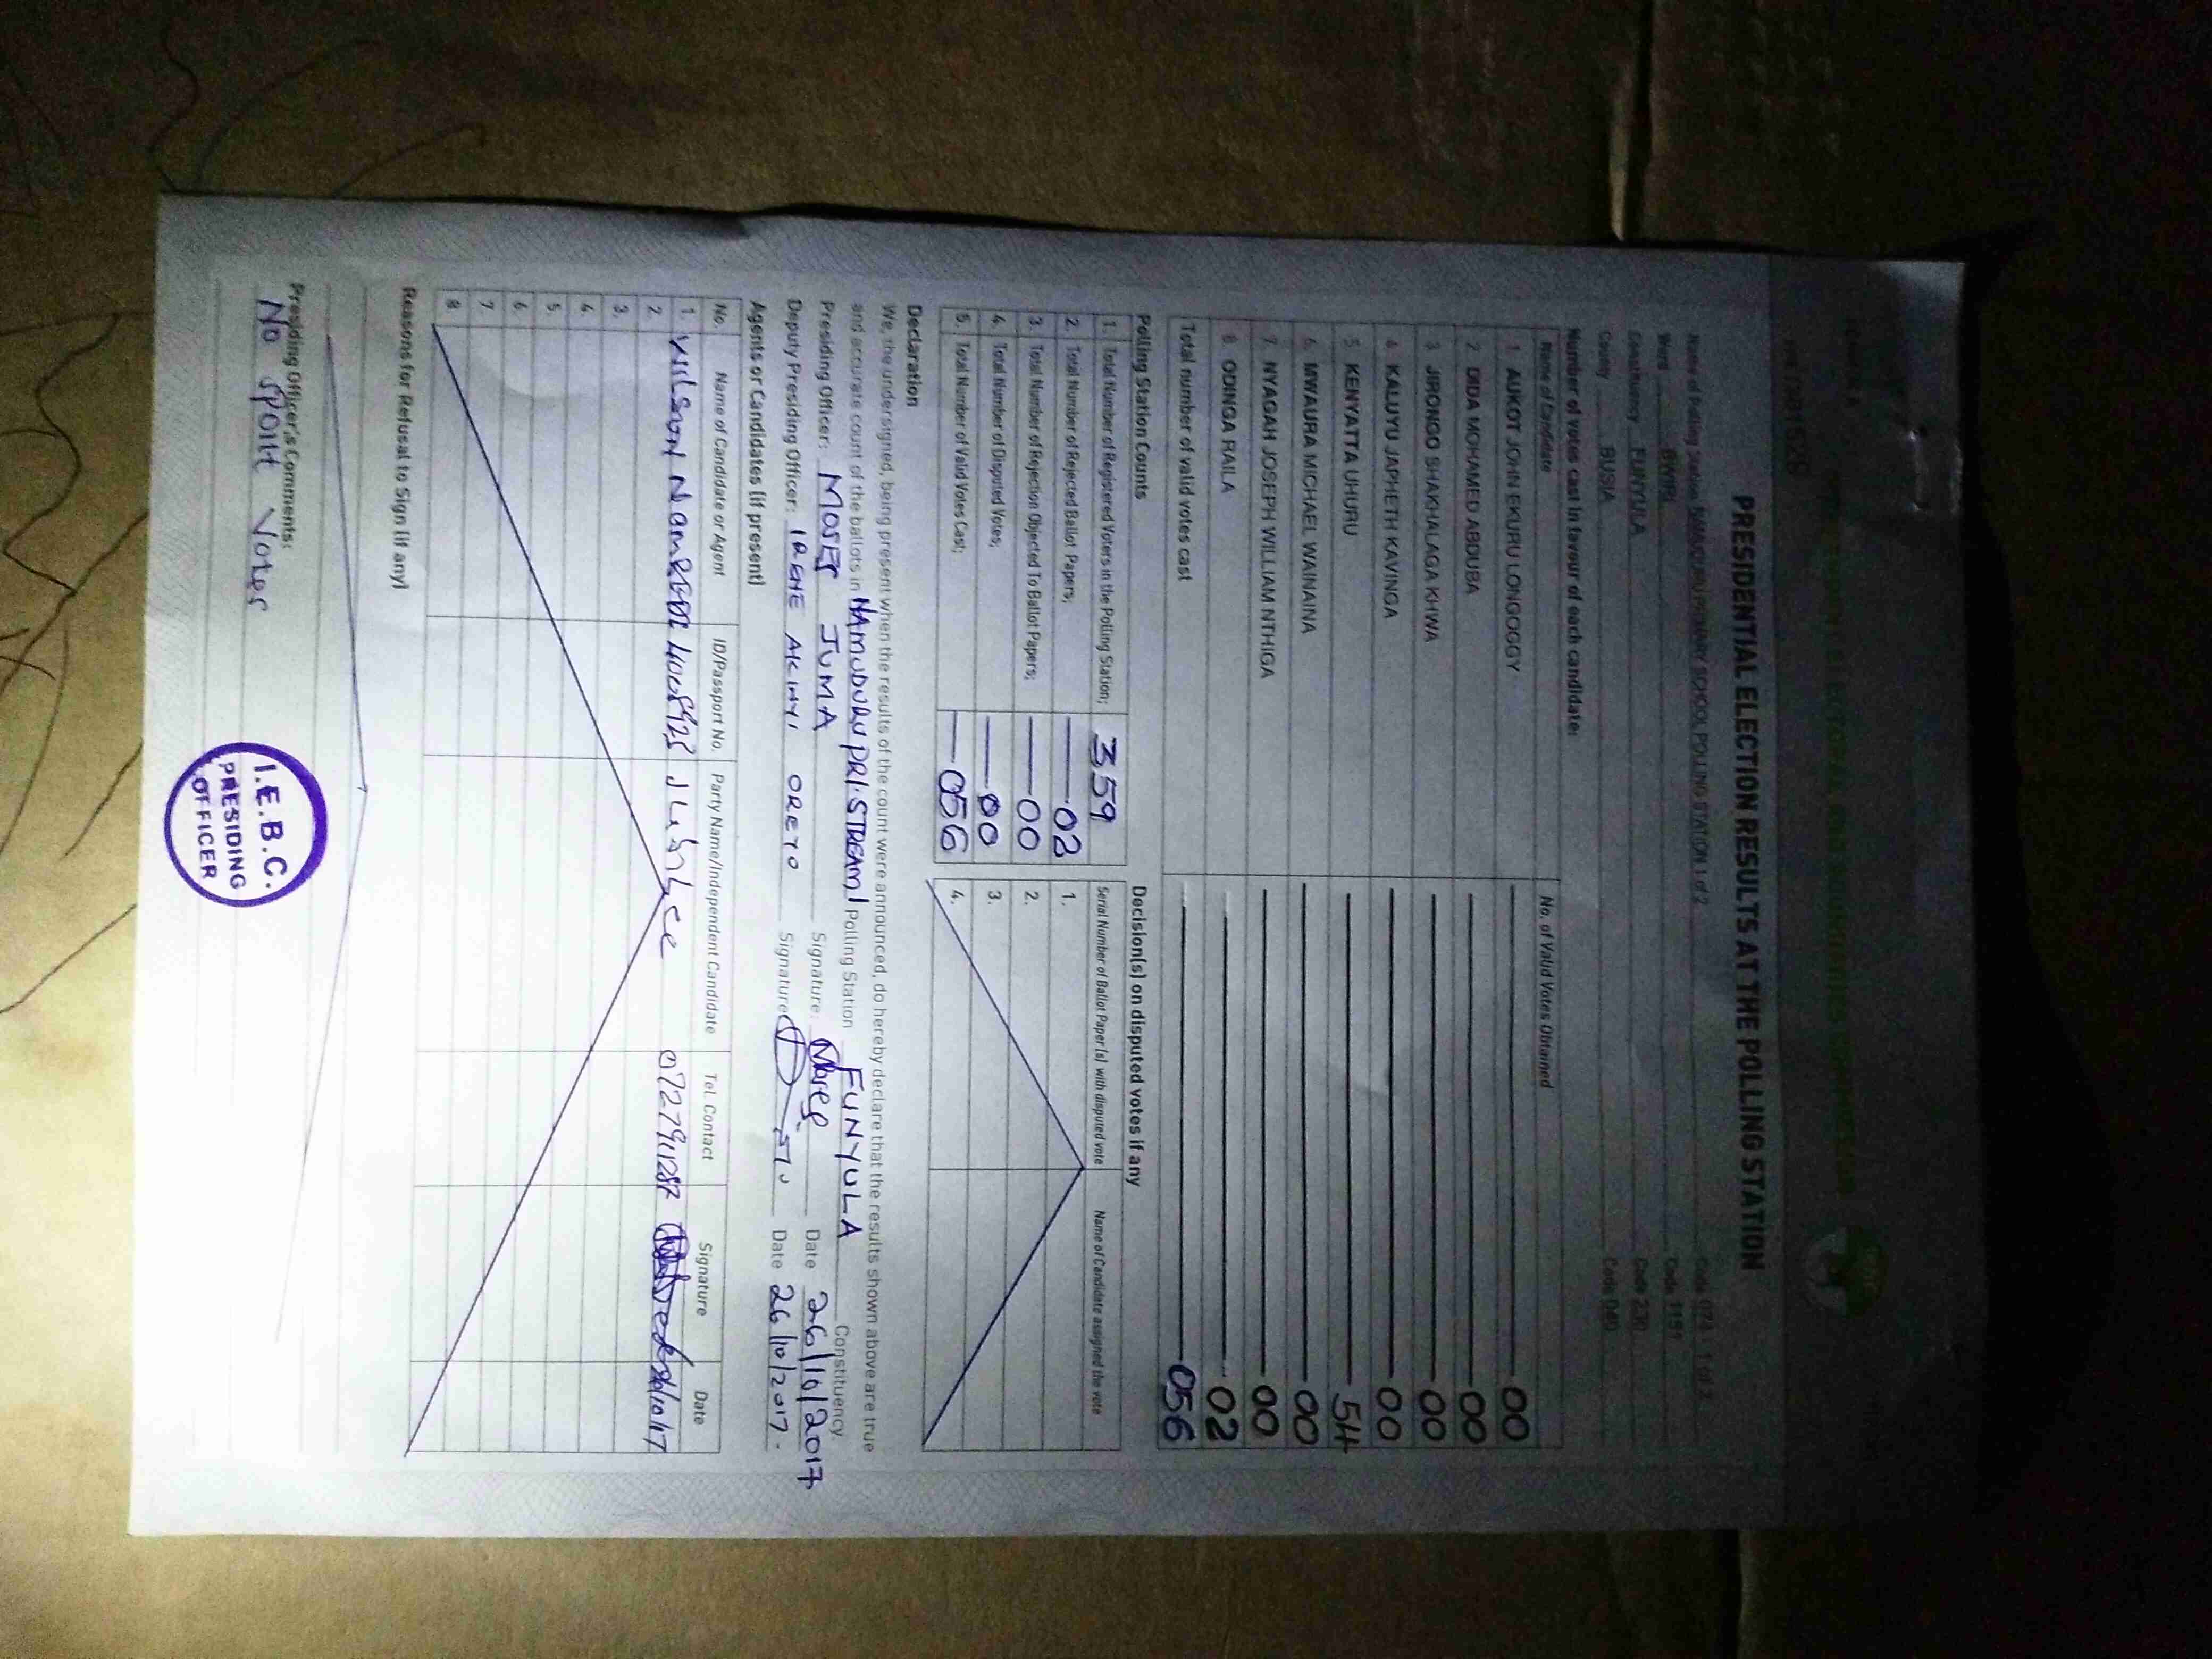 PRESIDENTIAL ELECTION RESULTS AT THE POLLING STATION
Name of Polling Station PRIMARY SCHOOL POLLING STATION 1 of 2
Ward BWIRI Code 1151
Constituency FUNYULA Code 230
County BUSIA Code 040
Number of votes cast in favour of each candidate:
Name of Candidate No. of Valid Votes Obtained
1 AUKOT JOHN EKURU LONGOGGY 00
2 DIDA MOHAMED ABDUBA 00
3 JIRONGO SHAKHALAGA KHWA 00
4 KALUYU JAPHETH KAVINGA 00
5 KENYATTA UHURU 54
6 MWAURA MICHAEL WAINAINA 00
7 NYAGAH JOSEPH WILLIAM NTHIGA 00
8 ODINGA RAILA 02
Total number of valid votes cast 056
Polling Station Counts Decision(s) on disputed votes if any
1. Total Number of Registered Voters in the Polling Station; 359
2. Total Number of Rejected Ballot Papers; 02
3. Total Number of Rejection Objected To Ballot Papers; 00
4. Total Number of Disputed Votes; 00
5. Total Number of Valid Votes Cast; 056
Serial Number of Ballot Paper (s) with disputed vote Name of Candidate assigned the vote
1.
2.
3.
4.
Declaration
We, the undersigned, being present when the results of the count were announced, do hereby declare that the results shown above are true
and accurate count of the ballots in NAMUDURU PRI. STREAM 1 Polling Station FUNYULA Constituency.
Presiding Officer: MOSES JUMA Signature: Date 26/10/2017
Deputy Presiding Officer: IRENE AKINYI OREYO Signature: Date 26/10/2017.
Agents or Candidates (if present)
No. Name of Candidate or Agent ID/Passport No. Party Name/Independent Candidate Tel. Contact Signature Date
1. WILSON
2
3.
4.
5
6
7
8
Reasons for Refusal to Sign (if any)
Presiding Officer's Comments:
No spoilt Votes
I.E.B.C.
PRESIDING
OFFICER